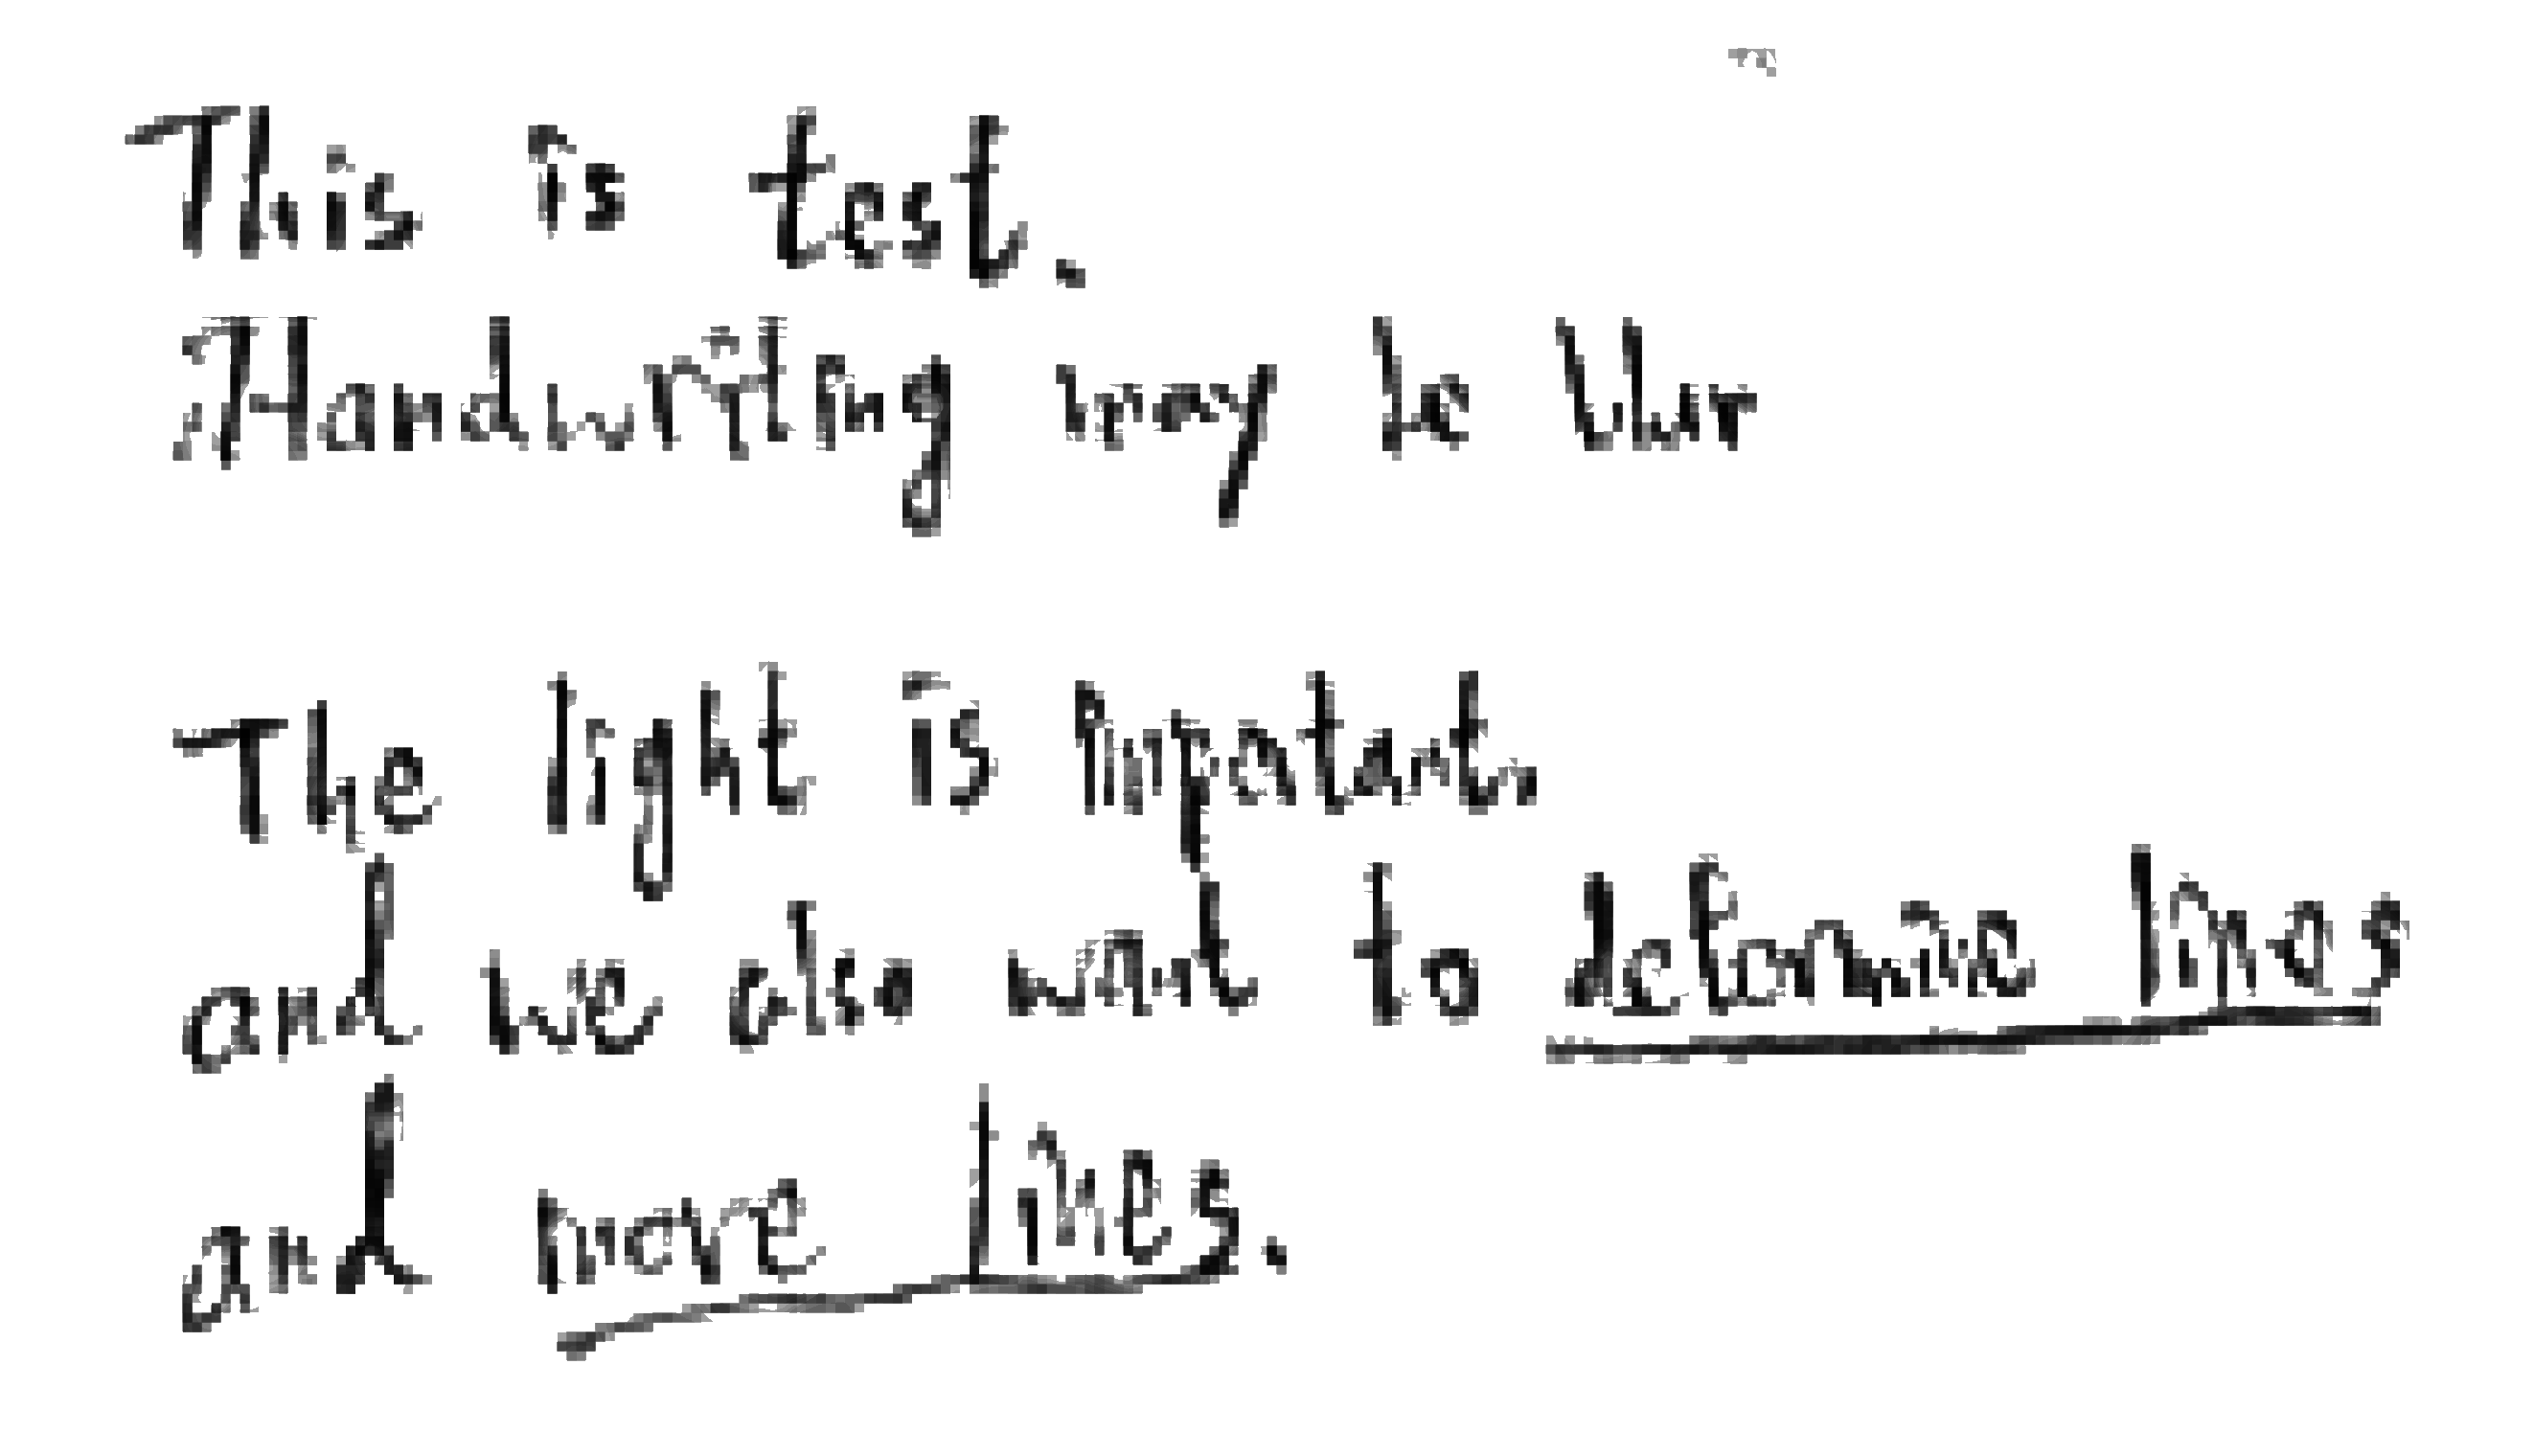 This is test.
Handwriting may be blur
The light is important,
and we also want to determine lines
and more lines.